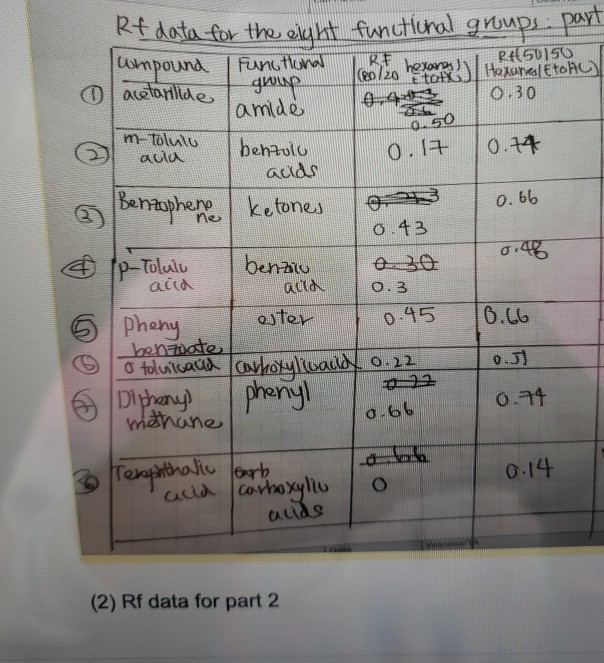 Rf data for the eight functional groups: part
compound Functional group RF (80/20 hexanes/EtOAc) Rf(50/50 Hexanes/EtOAC)
① acetanilide amide 0.50 0.30
② m-Toluic acid benzoic acids 0.17 0.74
③ Benzophenone ketones 0.43 0.66
④ p-Toluic acid benzoic acid 0.30 0.3 0.48
⑤ Pheny benzoate ester 0.45 0.66
⑥ o toluic acid carboxylic acid 0.22 0.51
⑦ Diphenyl methane phenyl 0.22 0.66 0.74
⑧ Terephthalic acid carb carboxylic acids 0.66 0 0.14
(2) Rf data for part 2